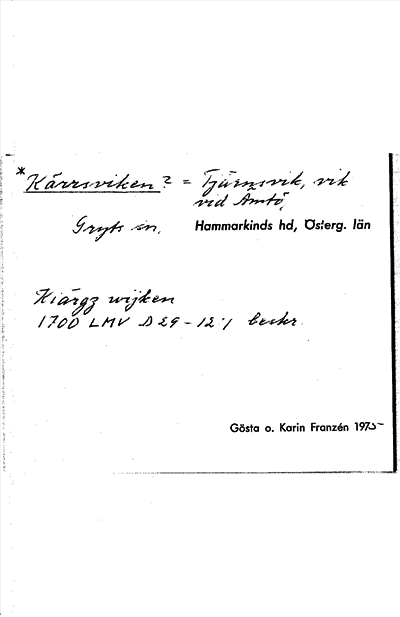 * Kärrsviken? = Tjärnsvik, vik
vid Ämtö,
Gryts sn, Hammarkinds hd, Österg. län
Kiärgz wijken
1700 LMV D 29-12:1 beskr.
Gösta o. Karin Franzén 1975